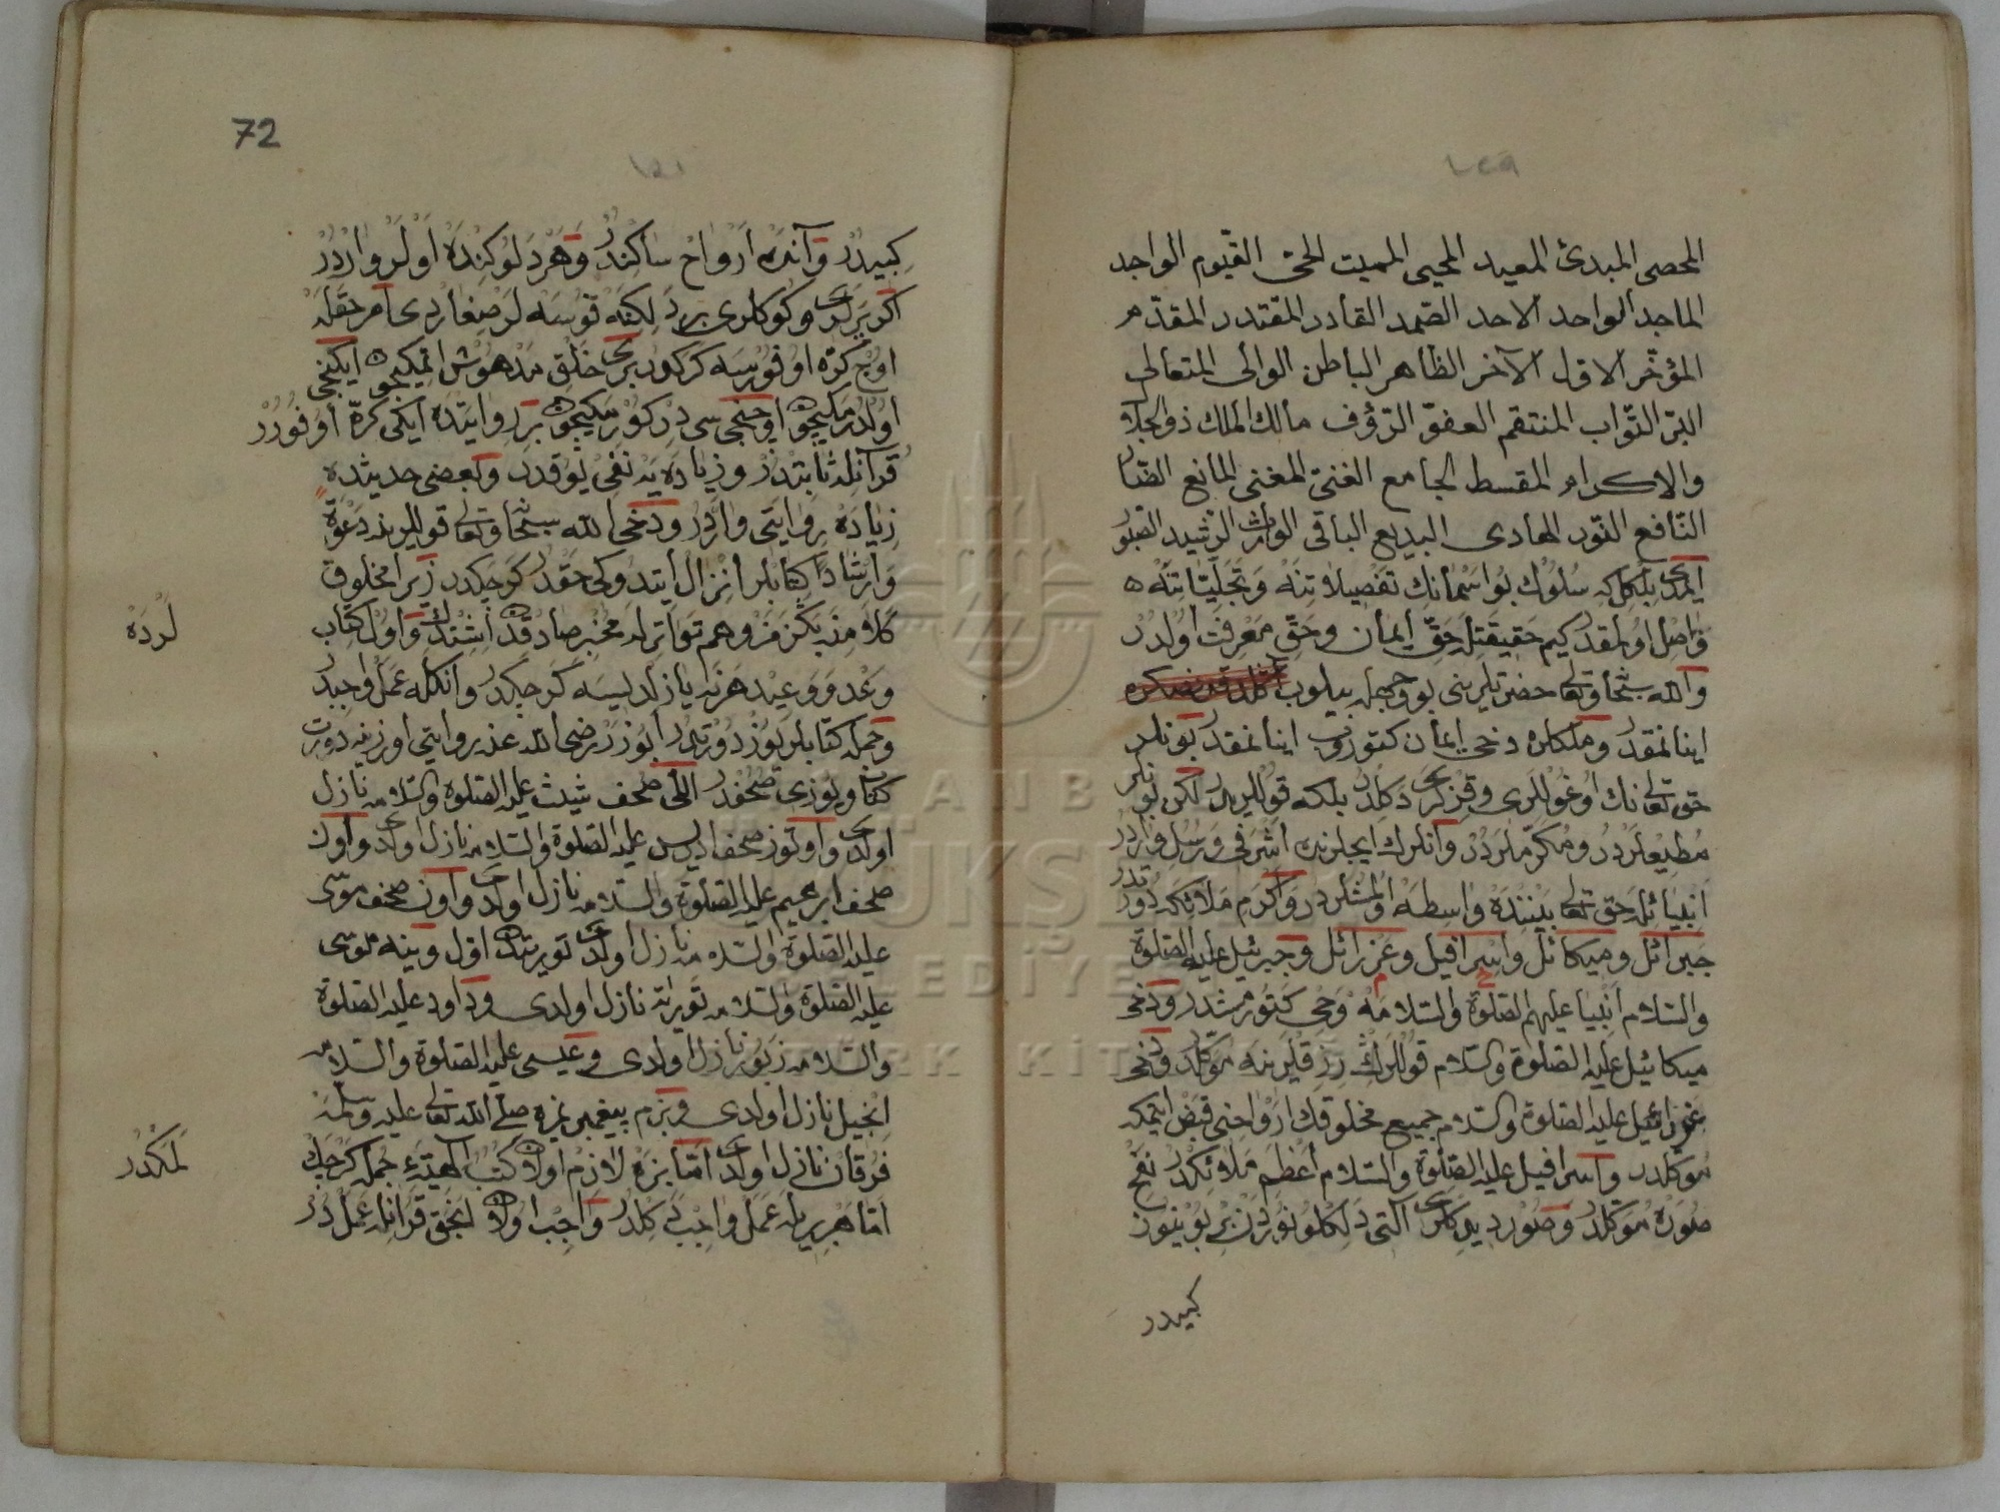 المحصى المبدئ المعيد المحيى المميت الحى القيوم الواجد
الماجد الواحد الاحد الصمد القادر المقتدر المقدم
المؤخر الاول الآخر الظاهر الباطن الوالى المتعالى
البر التواب المنتقم العفو الرؤف مالك الملك ذو الجلا
والاكرام المقسط الجامع الغنى المغنى المانع الضار
النافع النور الهادى البديع الباقى الوارث الرشيد الصبور
ايمدى بلكل كه سلوك بو اسمانك تفصيلاتنه وتجلياتنه
واصل اولمقدر كيم حقيقتله حق ايمان وحق معرفت اولدر
والله سبحانه وتعالى حضرتلرينى بو وجهله بيلوب
اينانمقدر وملكلره دخى ايمان كتوروب اينانمقدر بونلر
حق تعالى نك اوغوللرى وقزلرى دكلدر بلكه قوللريدر لكن بونلر
مطيعلردر ومكرملردر وانلرك ايچلرنده اشرفى ورسل واردر
انبيائله حق تعالى بيننده واسطه اولمشلردر واكرم ملائكه دورتدر
جبرائل وميكائل واسرافيل وعزرائل وجبرئيل عليه الصلوة
والسلام انبيا عليهم الصلوة والسلامه وحى كتورمشدر ودخى
ميكائيل عليه الصلوة والسلام قوللرك رزقلرينه موكلدر ودخى
عزرائيل عليه الصلوة والسلام جميع مخلوقك ارواحنى قبض ايتمكه
موكلدر واسرافيل عليه الصلوة والسلام اعظم ملائكدر نفخ
صوره موكلدر وصور ديدكلرى التى دلكلو نوردن بر بوينوز
كبيدر
72
كبيدر وآنده ارواح ساكندر وهر دلوكنده اولر واردر
اكر يرلرى وكوكلرى بر دلكنه قوسه لر صغاردى امر حقله
اوچ كره اوفورسه كركدر برى خلق مدهوش اتمكيچون ايكنجى
اولدرمكيچون اوچنجى سى دركورمكيچون بر روايتده ايكى كره اوفورر
قرآنله ثابتدر وزياده يه نفى يوقدر وبعضى حديثده
زياده روايتى واردر ودخى الله سبحانه وتعالى قوللرينه دعوة
وارشادا كتابلر انزال ايتدوكى حقدر كرچكدر زيرا مخلوق
كلامنه بكزمز وهم تواترله مخبر صادقدن اشتدك واول كتاب
لرده
وعد و وعيد هر نه يازلديسه كرچكدر وانكله عمل واجبدر
وجمله كتابلر يوز دورتدر ابوذر رضى الله عنه روايتى اوزرينه دورت
كتاب ويوزى صحفدر اللى صحف شيث عليه الصلوة والسلامه نازل
اولدى واوتوز صحف ادريس عليه الصلوة والسلامه نازل اولدى واون
صحف ابرهيم عليه الصلوة والسلامه نازل اولدى واون صحف موسى
عليه الصلوة والسلامه نازل اولدى توريتدن اول وينه موسى
عليه الصلوة والسلامه توراة نازل اولدى وداود عليه الصلوة
والسلامه زبور نازل اولدى وعيسى عليه الصلوة والسلامه
انجيل نازل اولدى وبزم پيغمبريمزه صلى الله تعالى عليه وسلمه
فرقان نازل اولدى اما بزه لازم اولان كتب الهيه جمله كرچك
لمكدر
اما هر بريله عمل واجب دكلدر واجب اولان انجق قرآنله عملدر